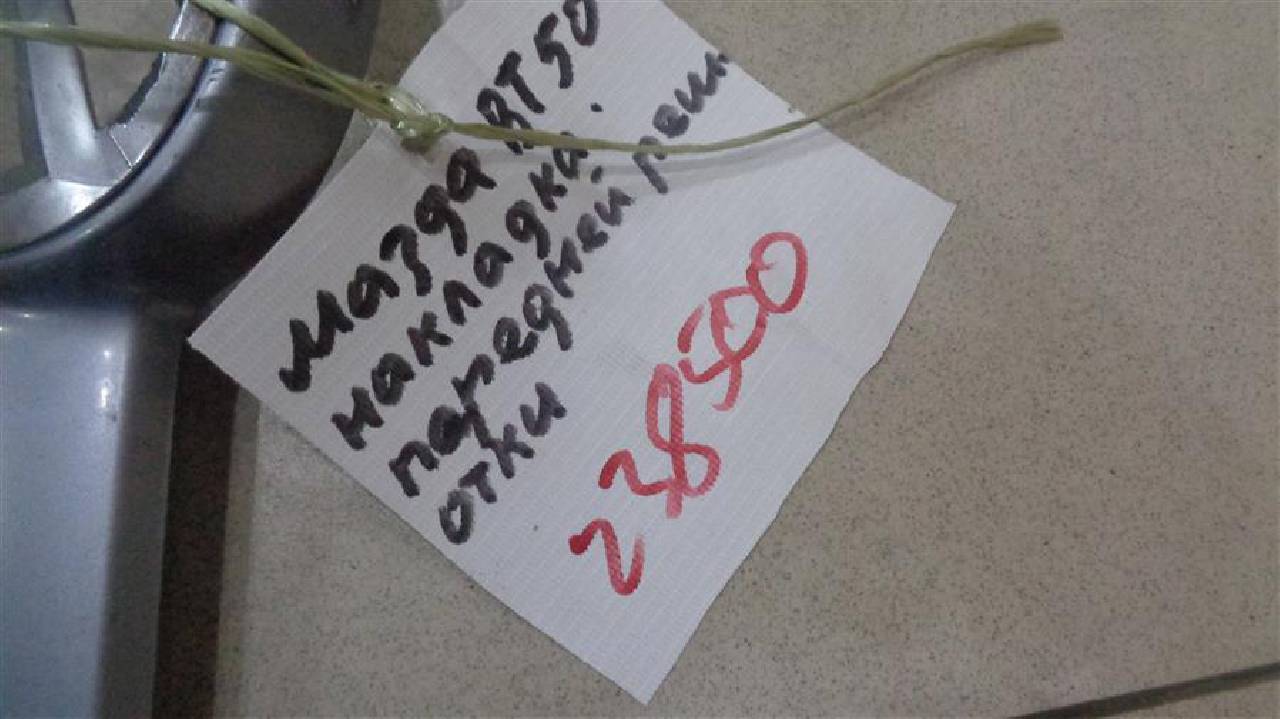 Мазда ВТ50
накладка.
паредней реш
отки
28500